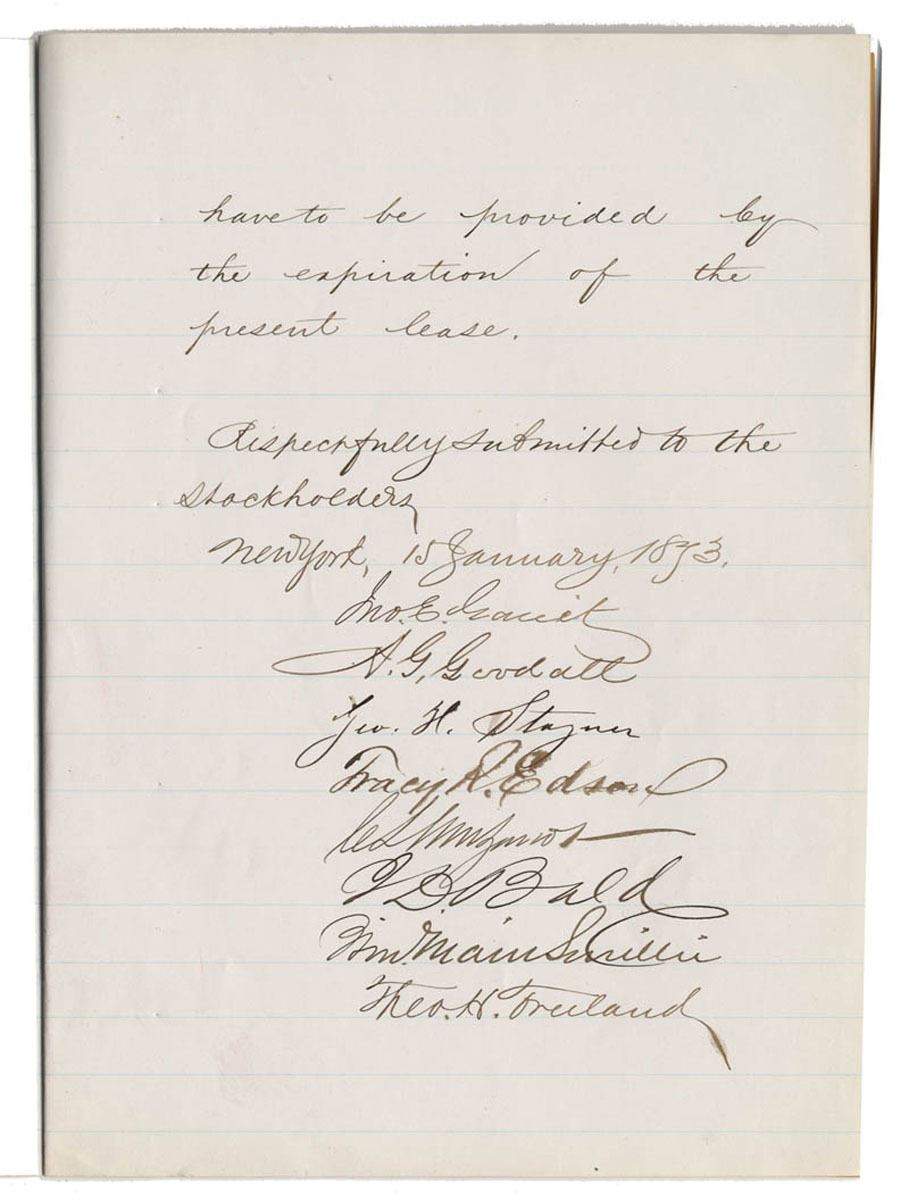 have to be provided by
the expiration of the
present lease.
Respectfully submitted to the
stockholders
New York, 15 January, 1873.
Jno. E. Gavit
A. G. Goodall
Geo. H. Stayner
Tracy R. Edson
J D. Bald
Wm. Main Smillie
Theo. H. Freeland